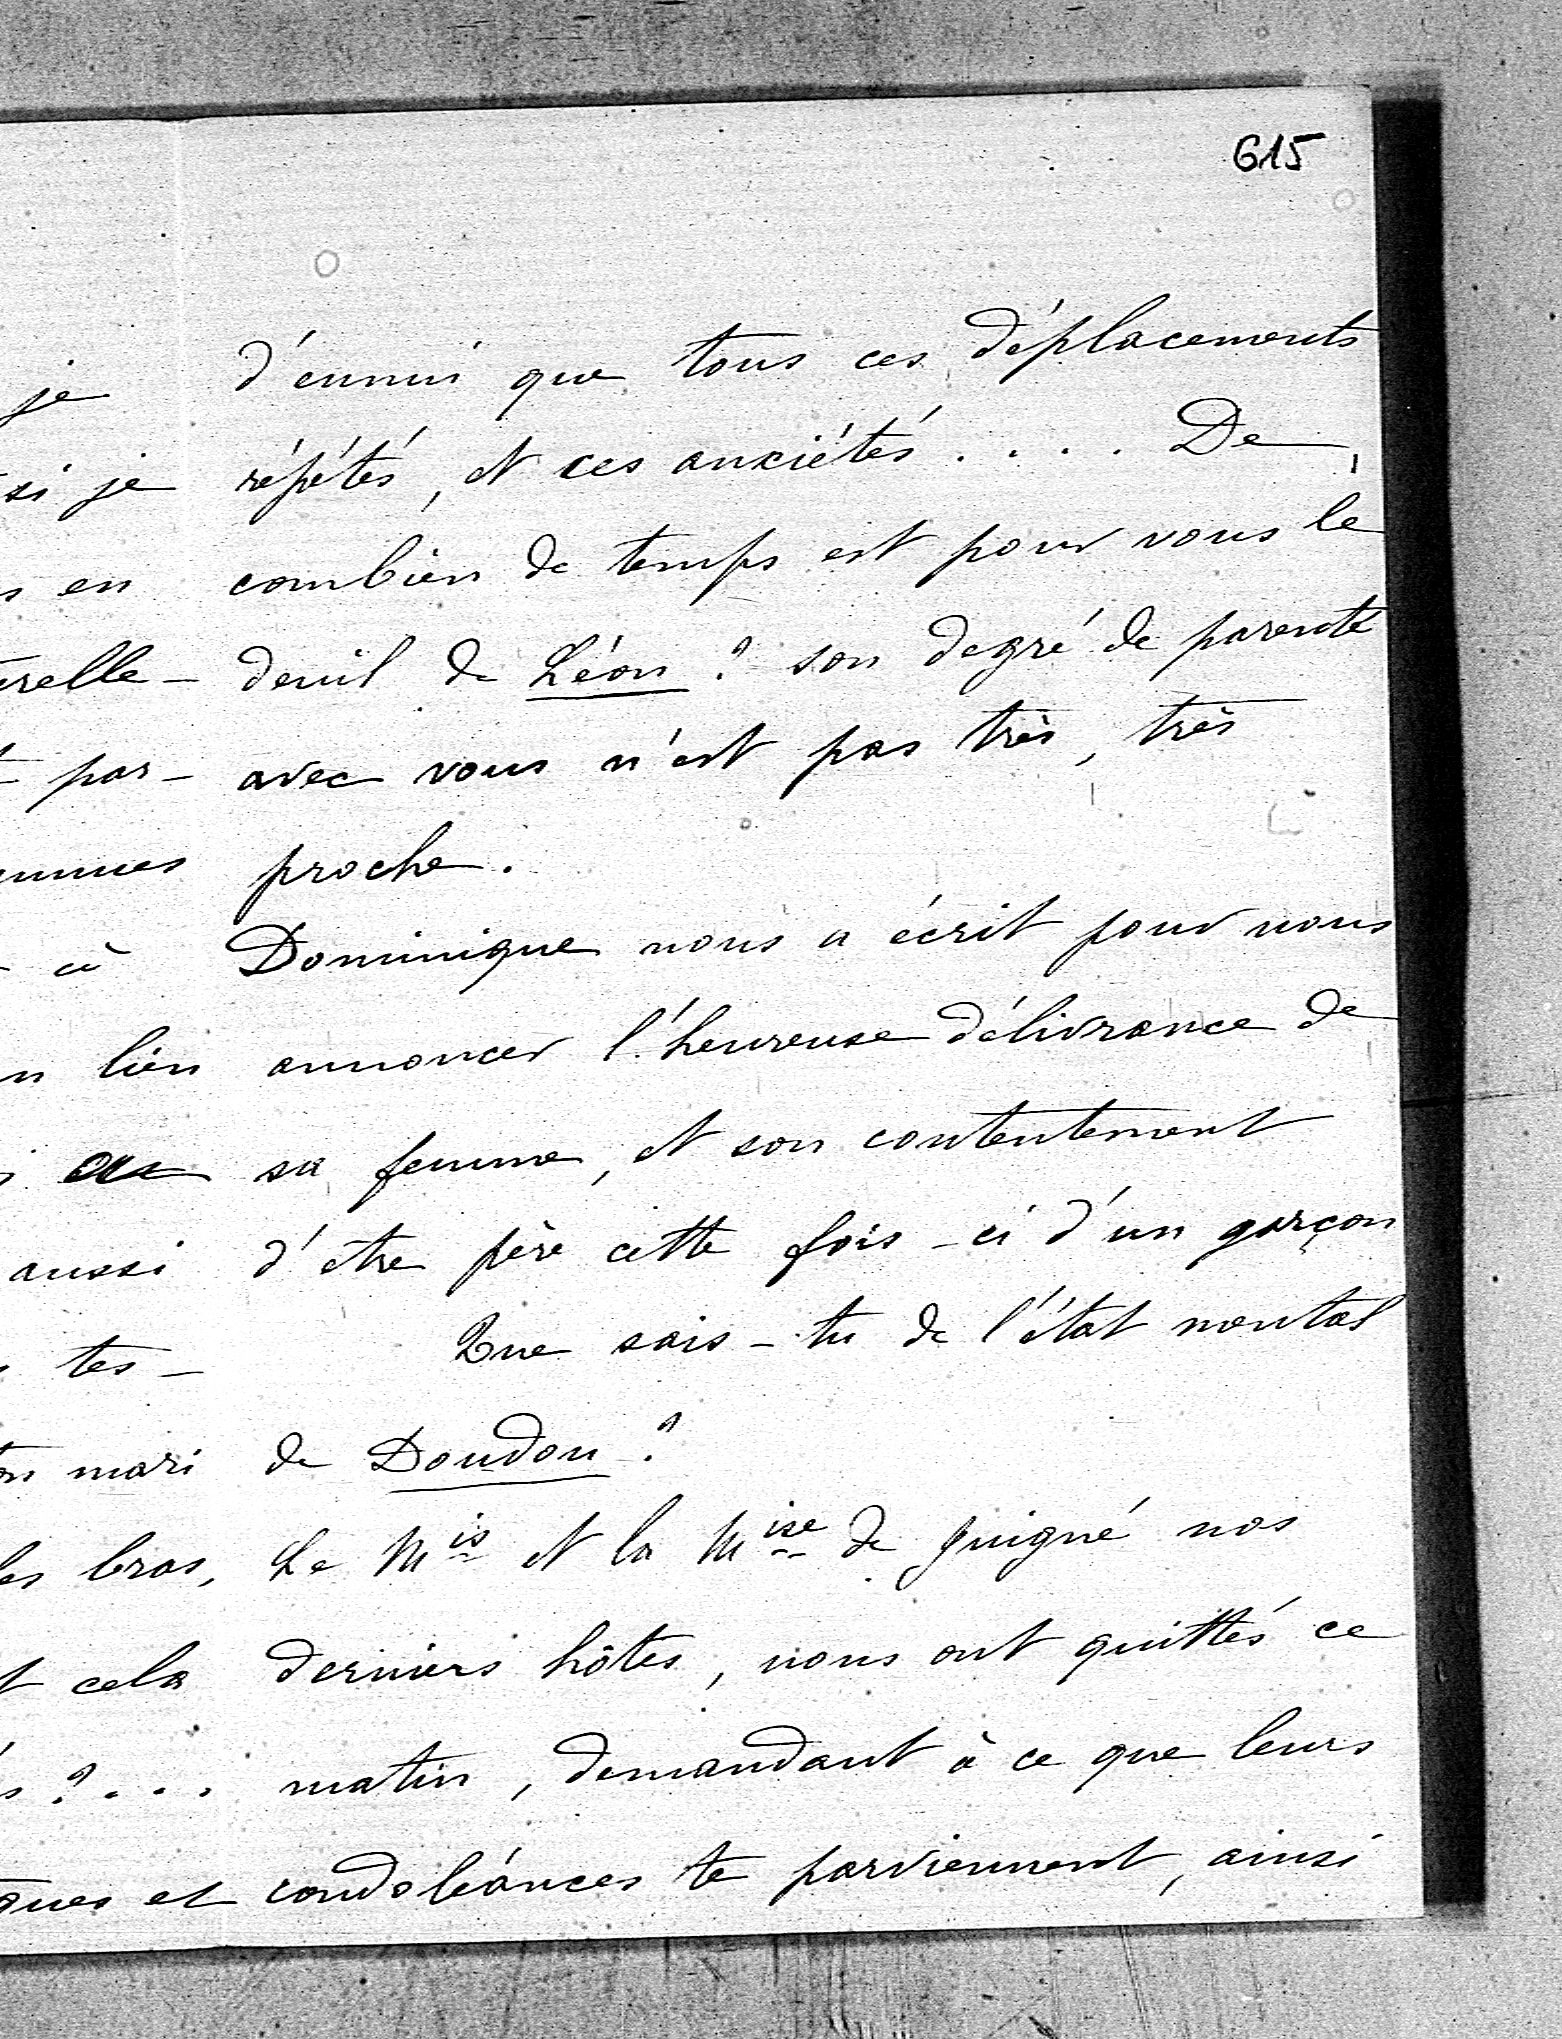 615
je
si je
en
erelle-
par-
à
lien
aussi
tes-
mari
les bras,
cela
? . . .
et
d'ennui que tous ces déplacements
répétés, et ces anxiétés . . . . De
combien de temps est pour vous le
deuil de Léon ? son degré de parenté
avec vous n'est pas très, très
proche.
Dominique nous a écrit pour nous
annoncer l'heureuse délivrance de
sa femme, et son contentement
d'être père cette fois-ci d'un garçon
Que sais-tu de l'état mental
de Doudou ?
Le Mis et la Mise de Guigné nos
derniers hôtes, nous ont quittés ce
matin, demandant à ce que leurs
condoléances te parviennent, ainsi